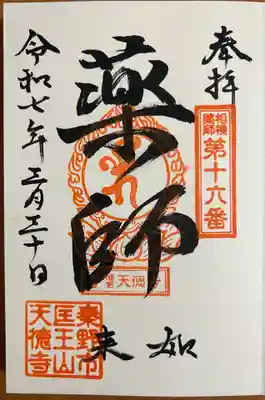 奉拝
相模
薬師
第十六番
薬師
如来
天徳寺
令和七年三月三十日
秦野市
匡王山
天徳寺